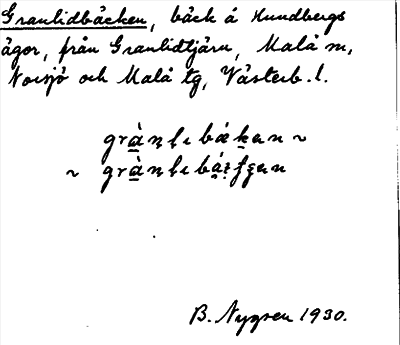 Granlidbäcken, bäck å Hundbergs
ägor, från Granlidtjärn, Malå m,
Norsjö och Malå tg, Västerb. l.
B. Nygren 1930.